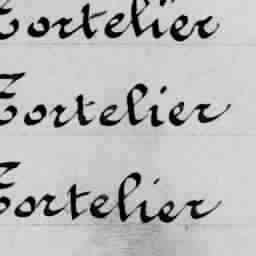 Tortelier
Tortelier
Tortelier